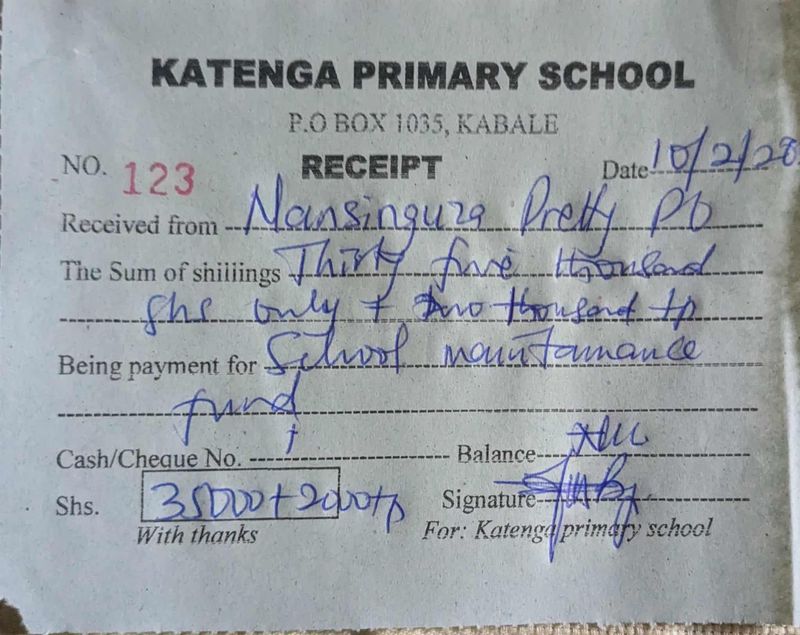 KATENGA PRIMARY SCHOOL
P.O BOX 1035, KABALE
NO. 123 RECEIPT Date 10/2/28
Received from Mansinguza Pretty P6
The Sum of shiiiings Thirty five thousand
shs only + two thousand tp
Being payment for School maintainance
fund
Cash/Cheque No. Balance Nil
Shs. 35000+2000tp Signature
With thanks For: Katenga primary school